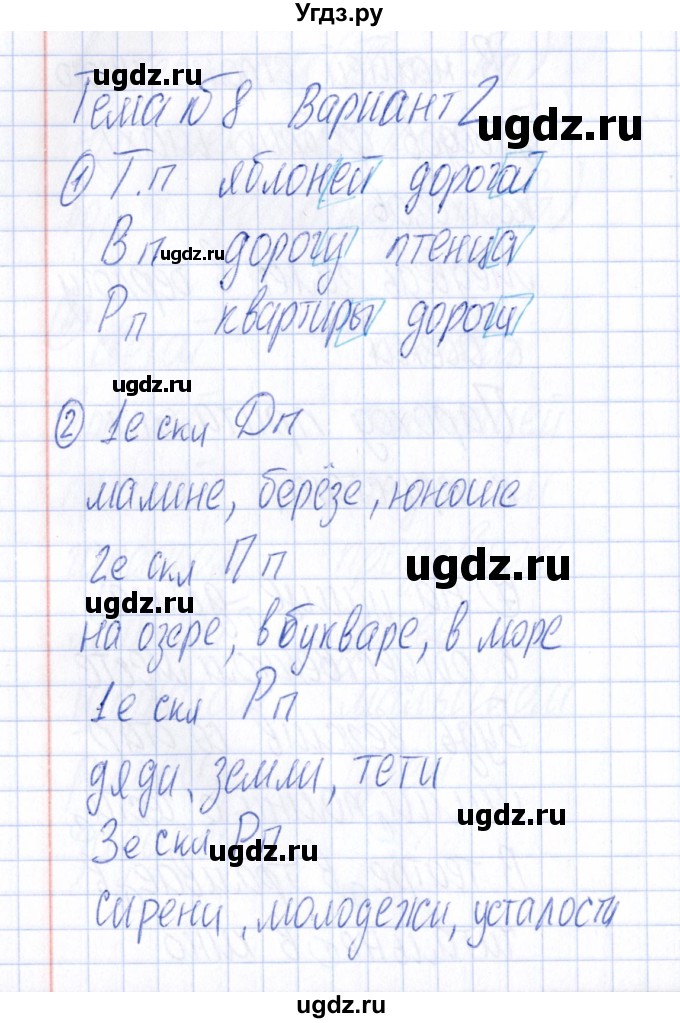 Угдз.ру
ugdz.ru
Тема №8 Вариант 2
ugdz.ru
① Т.п яблоней дорогой
В п дорогу птенца
ugdz.ru
Рп квартиры дороги
ugdz.ru
② 1е скл Дп
малине, берёзе, юноше
2е скл Пп
ugdz.ru
ugdz.ru
на озере, в букваре, в море
1е скл Рп
дяди, земли, тети
ugdz.ru
3е скл Рп
ugdz.ru
сирени, молодежи, усталости
ugdz.ru